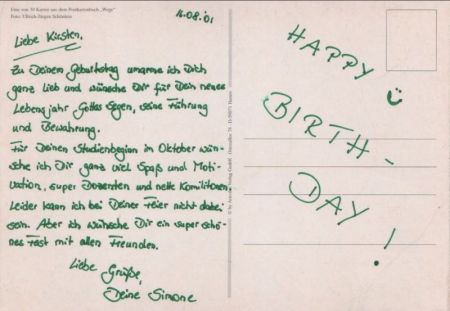 Eine von 30 Karten aus dem Postkartenbuch „Wege“
Foto: Ullrich-Jürgen Schönlein
11.08.'01
Liebe Kirsten,
Zu Deinem Geburtstag umarme ich Dich
ganz lieb und wünsche Dir für Dein neues
Lebensjahr Gottes Segen, seine Führung
und Bewahrung.
Für Deinen Studienbeginn im Oktober wün-
sche ich Dir ganz viel Spaß und Moti-
vation, super Dozenten und nette Komilitonen
Leider kann ich bei Deiner Feier nicht dabei
sein. Aber ich wünsche Dir ein super schö-
nes Fest mit allen Freunden.
Liebe Grüße,
Deine Simone
HAPPY
BIRTH-
DAY!